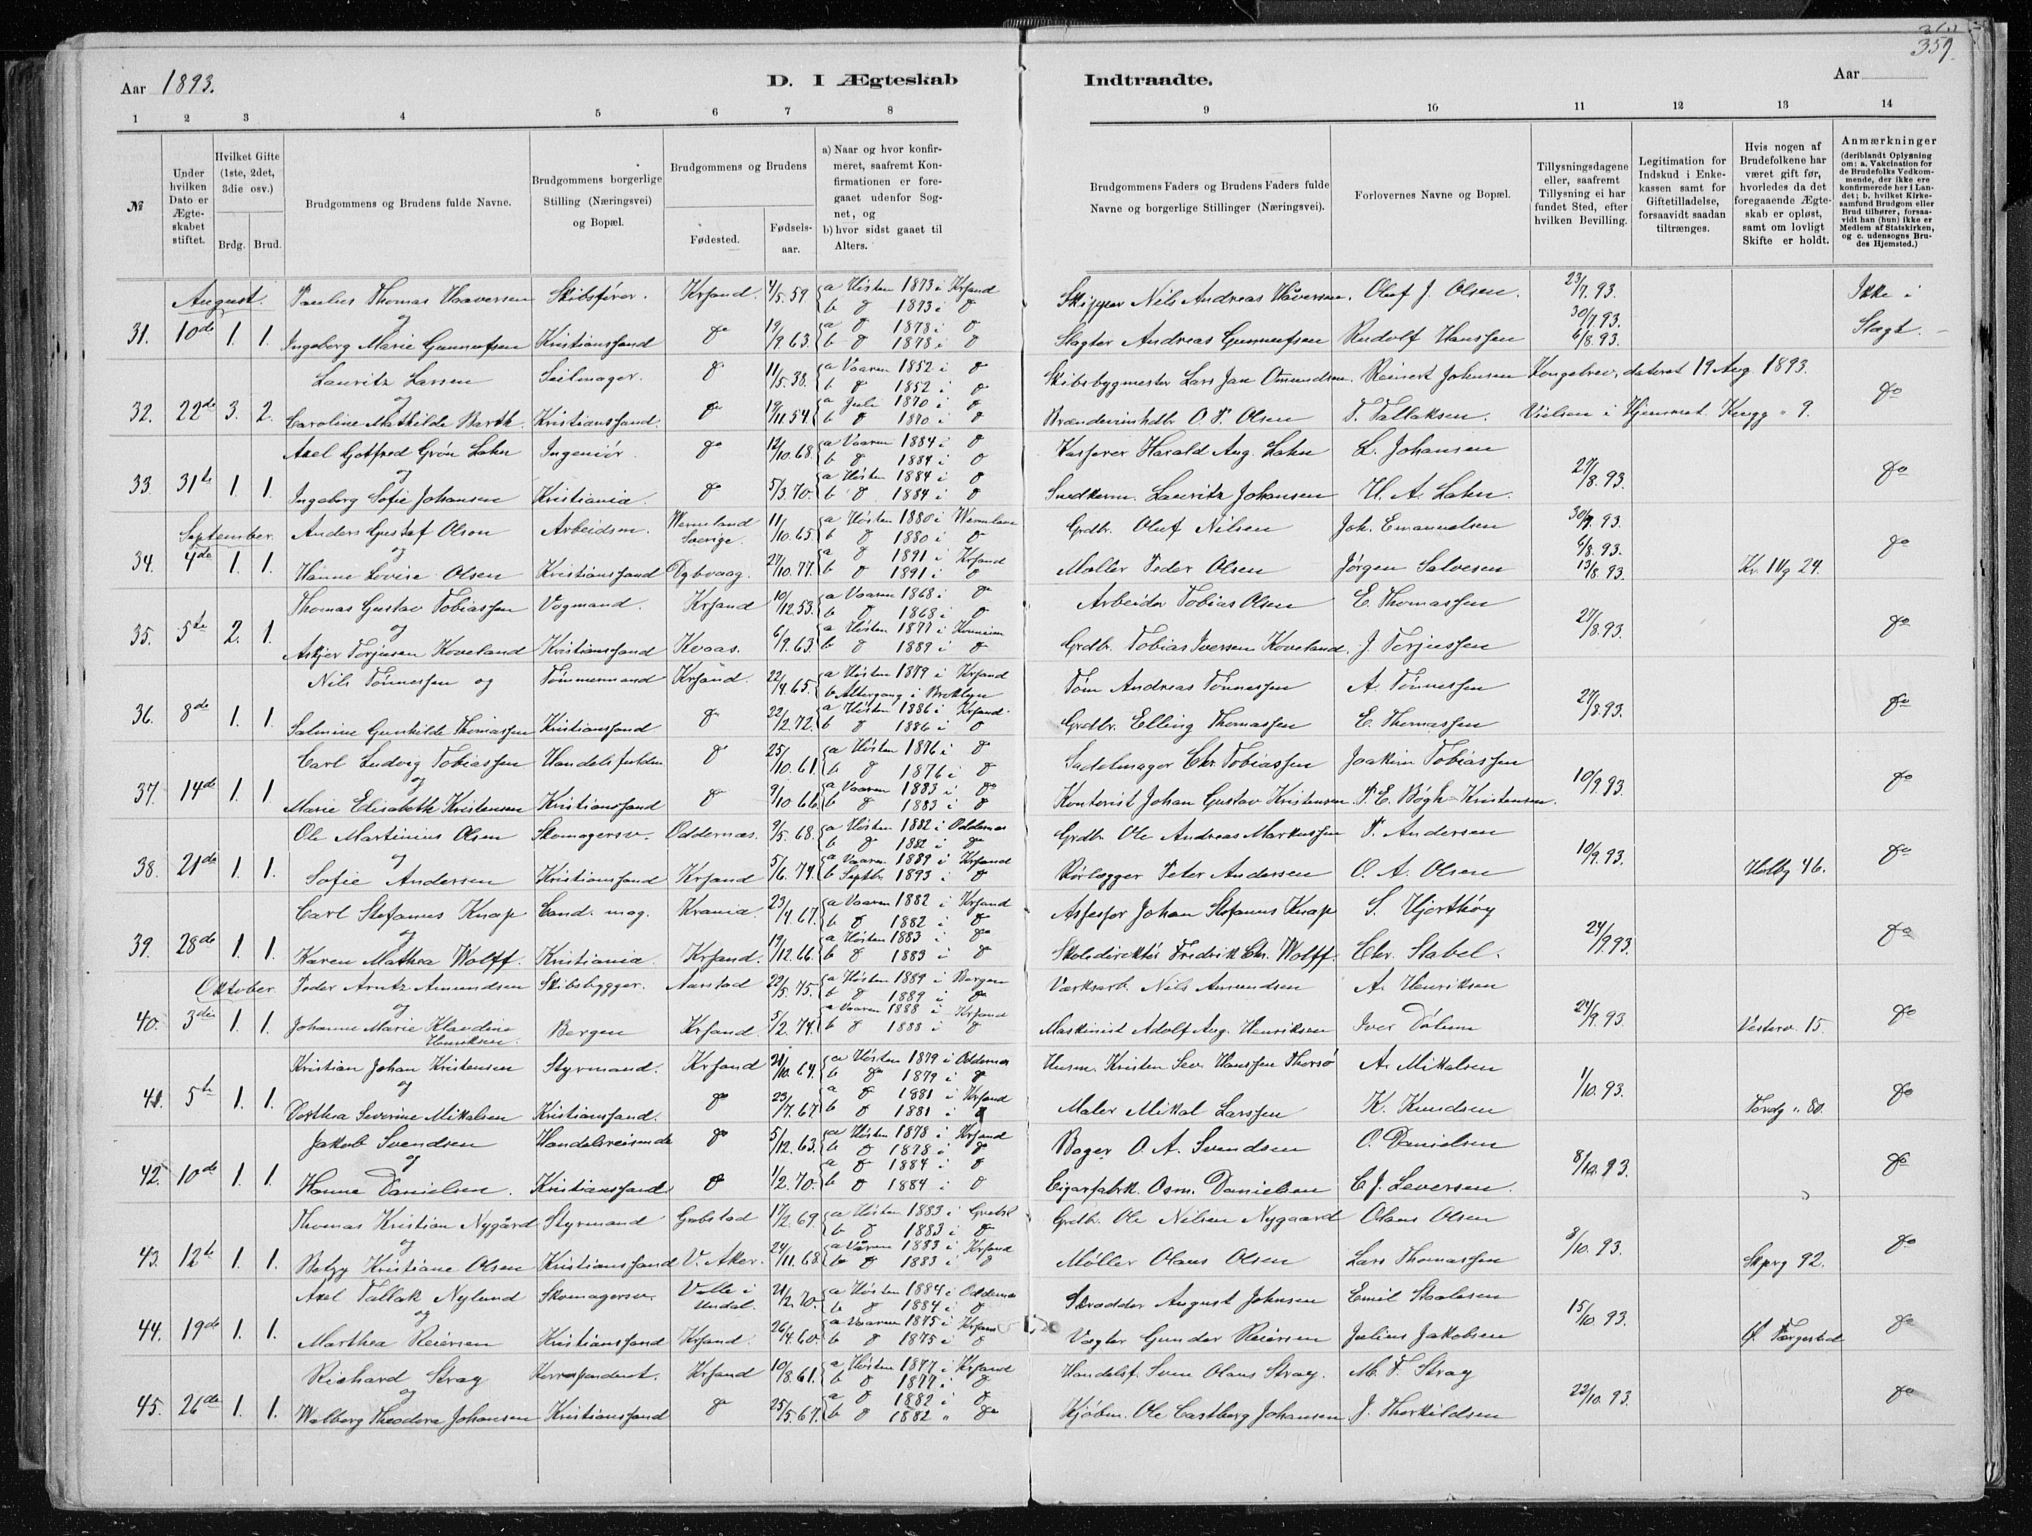 360
359.
Aar 1893.
D. I Ægteskab
Indtraadte.
Aar
1 2 3 4 5 6 7 8 9 10 11 12 13 14
№
Under hvilken Dato er Ægteskabet stiftet.
Hvilket Gifte (1ste, 2det, 3die osv.)
Brdg. Brud.
Brudgommens og Brudens fulde Navne.
Brudgommens borgerlige Stilling (Næringsvei) og Bopæl.
Brudgommens og Brudens
Fødested. Fødselsaar.
a) Naar og hvor konfirmeret, saafremt Konfirmationen er foregaaet udenfor Sognet, og
b) hvor sidst gaaet til Alters.
Brudgommens Faders og Brudens Faders fulde Navne og borgerlige Stillinger (Næringsvei).
Forlovernes Navne og Bopæl.
Tillysningsdagene eller, saafremt Tillysning ei har fundet Sted, efter hvilken Bevilling.
Legitimation for Indskud i Enkekassen samt for Giftetilladelse, forsaavidt saadan tiltrænges.
Hvis nogen af Brudefolkene har været gift før, hvorledes da det foregaaende Ægteskab er opløst, samt om lovligt Skifte er holdt.
Anmærkninger
(deriblandt Oplysning om: a. Vakcination for de Brudefolks Vedkommende, der ikke ere konfirmerede her i Landet; b. hvilket Kirkesamfund Brudgom eller Brud tilhører, forsaavidt han (hun) ikke er Medlem af Statskirken, og c. udensogns Brudes Hjemsted.)
August. Paulus Thomas Haaversen Skibsfører. Krsand. 4/5.59 a Høsten 1873 i Krsand b do 1873 i do Skipper Nils Andreas Håversen. Oluf J. Olsen. 23/7.93. Ikke i
31. 10de 1. 1. og Ingeborg Marie Gunneufsen Kristianssand do 19/9.63. a do 1878 i do b do 1878 i do Slagter Andreas Gunneufsen Rudolf Hanssen 30/7.93. 6/8.93. Slægt.
Lauritz Larsen Seilmager. do 11/5.38. a Vaaren 1852 i do b do 1852 i do Skibsbygmester Lars Jan Omundsen. Reinert Johnsen Kongebrev, dateret 19 Aug 1893.
32. 22de 3. 2. og Caroline Mathilde Barth. Kristianssand. do 19/11.54. a Juli 1870 i do b do 1870 i do Brændevinshdlr O. P. Olsen T. Tallaksen. Vielsen i Hjemmet Kongg. 9. do
Axel Gotfred Grön Lahn Ingeniör. do 12/10.68. a Vaaren 1884 i do b do 1884 i do Harald Aug. Lahn L. Johansen
33. 31te 1. 1. og Ingeborg Sofie Johansen Kristiania. do 5/3.70. a Høsten 1884 i do b do 1884 i do Snedkerm. Lauritz Johansen H. A. Lahn. 27/8.93. do
September. Anders Gustaf Olson Arbeidsm. Wermland Sverige. 11/10.65 a Høsten 1880 i Wermland b do 1880 i do Grdbr. Oluf Nilsen Joh. Emanuelsen 30/7.93.
34. 4de 1. 1. og Hanne Lovise Olsen Kristianssand Dybvaag. 27/10.77. a do 1891 i Krsand b do 1891 i do Møller Peder Olsen Jørgen Salvesen 6/8.93. 13/8.93. Kr. IVg 24. do
Thomas Gustav Tobiassen Vognmand. Krsand 10/12.53. a Vaaren 1868 i do b do 1868 i do Arbeider Tobias Olsen E. Thomassen
35. 5te 2. 1. og Askjer Torjusen Koveland Kristianssand Kvaas. 6/9.63. a Høsten 1877 i b do 1889 i do Grdbr. Tobias Iversen Koveland. J. Torjussen 27/8.93. do
Nils Tönnessen og Tømmermand Krsand. 22/4.65. a Høsten 1879 i Krsand b Altergang i Broklyn Tøm Andreas Tønnessen A. Tønnessen
36. 8de 1. 1. Salmine Gunhilde Thomassen Kristianssand do 22/2.72. a Høsten 1886 i Krsand. b do 1886 i do Grdbr. Elling Thomassen E. Thomassen 27/8.93. do
Carl Ludvig Tobiassen Handelsfuldm. do 25/10.61. a Høsten 1876 i do b do 1876 i do Sadelmager Chr. Tobiassen Joakim Tobiassen
37. 14de 1. 1 og Marie Elisabeth Kristensen Kristianssand do 9/10.66. a Vaaren 1883 i do b do 1883 i do Kontorist Johan Gustav Kristensen P. E. Bøgh-Kristensen. 10/9.93. do
Ole Martinius Olsen Skomagersv. Oddernæs. 9/5.68. a Høsten 1882 i Oddernæs b do 1882 i do Grdbr. Ole Andreas Markussen P. Andersen
38. 21de 1. 1. og Sofie Andersen Kristianssand Krsand 5/6.74. a Vaaren 1889 i Krsand b Septbr. 1893 i do Rørlægger Peter Andersen O. A. Olsen 10/9.93. Holbg 46. do
Carl Stefanus Knap Cand. mag. Krania. 23/4.67. a Vaaren 1882 i Krsand b do 1882 i do Assessor Johan Stefanus Knap S. Hjorthøy
39. 28de 1. 1. og Karen Mathea Wolff. Kristiania. Krsand. 19/12.66. a Høsten 1883 i do b do 1883 i do Skoledirektør Fredrik Chr. Wolff. Chr. Stabel. 24/9.93. do
Oktober. Peder Arntz Amundsen Skibsbygger. Aarstad 22/5.75. a Høsten 1889 i Bergen b do 1889 i do Værksarb. Nils Amundsen A. Henriksen
40. 3die 1. 1. og Johanne Marie Klaudine Henriksen. Bergen Krsand. 5/2.74. a Vaaren 1888 i Krsand b do 1888 i do Maskinist Adolf Aug. Henriksen Iver Dølum 24/9.93. Vesterv. 15. do
Kristian Johan Kristensen Styrmand. Krsand 21/10.64. a Høsten 1879 i Oddernæs b do 1879 i do Husm. Kristen Sev. Hanssen Thorsø A. Mikalsen
41. 5te 1. 1. og Dorthea Severine Mikalsen Kristianssand. do 23/7.67. a do 1881 i Krsand b do 1881 i do Maler Mikal Larssen K. Knudsen 1/10.93. Tordg. 80. do
Jakob Svendsen Handelsreisende do 5/12.63. a Høsten 1878 i Krsand b do 1878 i do Bager O. A. Svendsen O. Danielsen
42. 10de 1. 1. og Hanne Danielsen. Kristianssand do 1/2.70. a do 1884 i do b do 1884 i do Cigarfabrk. Osm. Danielsen C. J. Leversen. 8/10.93. do
Thomas Kristian Nygård Styrmand Grebstad 17/2.69. a Høsten 1883 i b do 1883 i do Grdbr. Ole Nilsen Nygaard Olaus Olsen
43. 12te 1. 1. og Betzy Kristiane Olsen Kristianssand V. Aker. 24/11.68. a Våren 1883 i Krsand b do 1883 i do Møller Olaus Olsen Lars Thomassen 8/10.93. Skprg 92. do
Axel Tallak Nylund Skomagersv. Valle i Undal. 21/2.70. a Høsten 1884 i Oddernæs b do 1884 i do Skrædder August Johnsen Emil Staalesen
44. 19de 1. 1. og Marthea Reiersen Kristianssand Krsand. 26/4.60. a Vaaren 1875 i Krsand b do 1875 i do Vægter Gunder Reiersen Julius Jakobsen 15/10.93. do
Richard Stray Korrespondent. Krsand 10/8.61. a Høsten 1877 i Krsand b do 1877 i do Handelsf. Sven Olaus Stray. M. F. Stray
45. 26de 1. 1. og Walborg Theodora Johansen Kristianssand do 25/5.67. a do 1882 i do b do 1882 " do Kjøbm. Ole Castberg Johansen J. Therkildsen 22/10.93. do